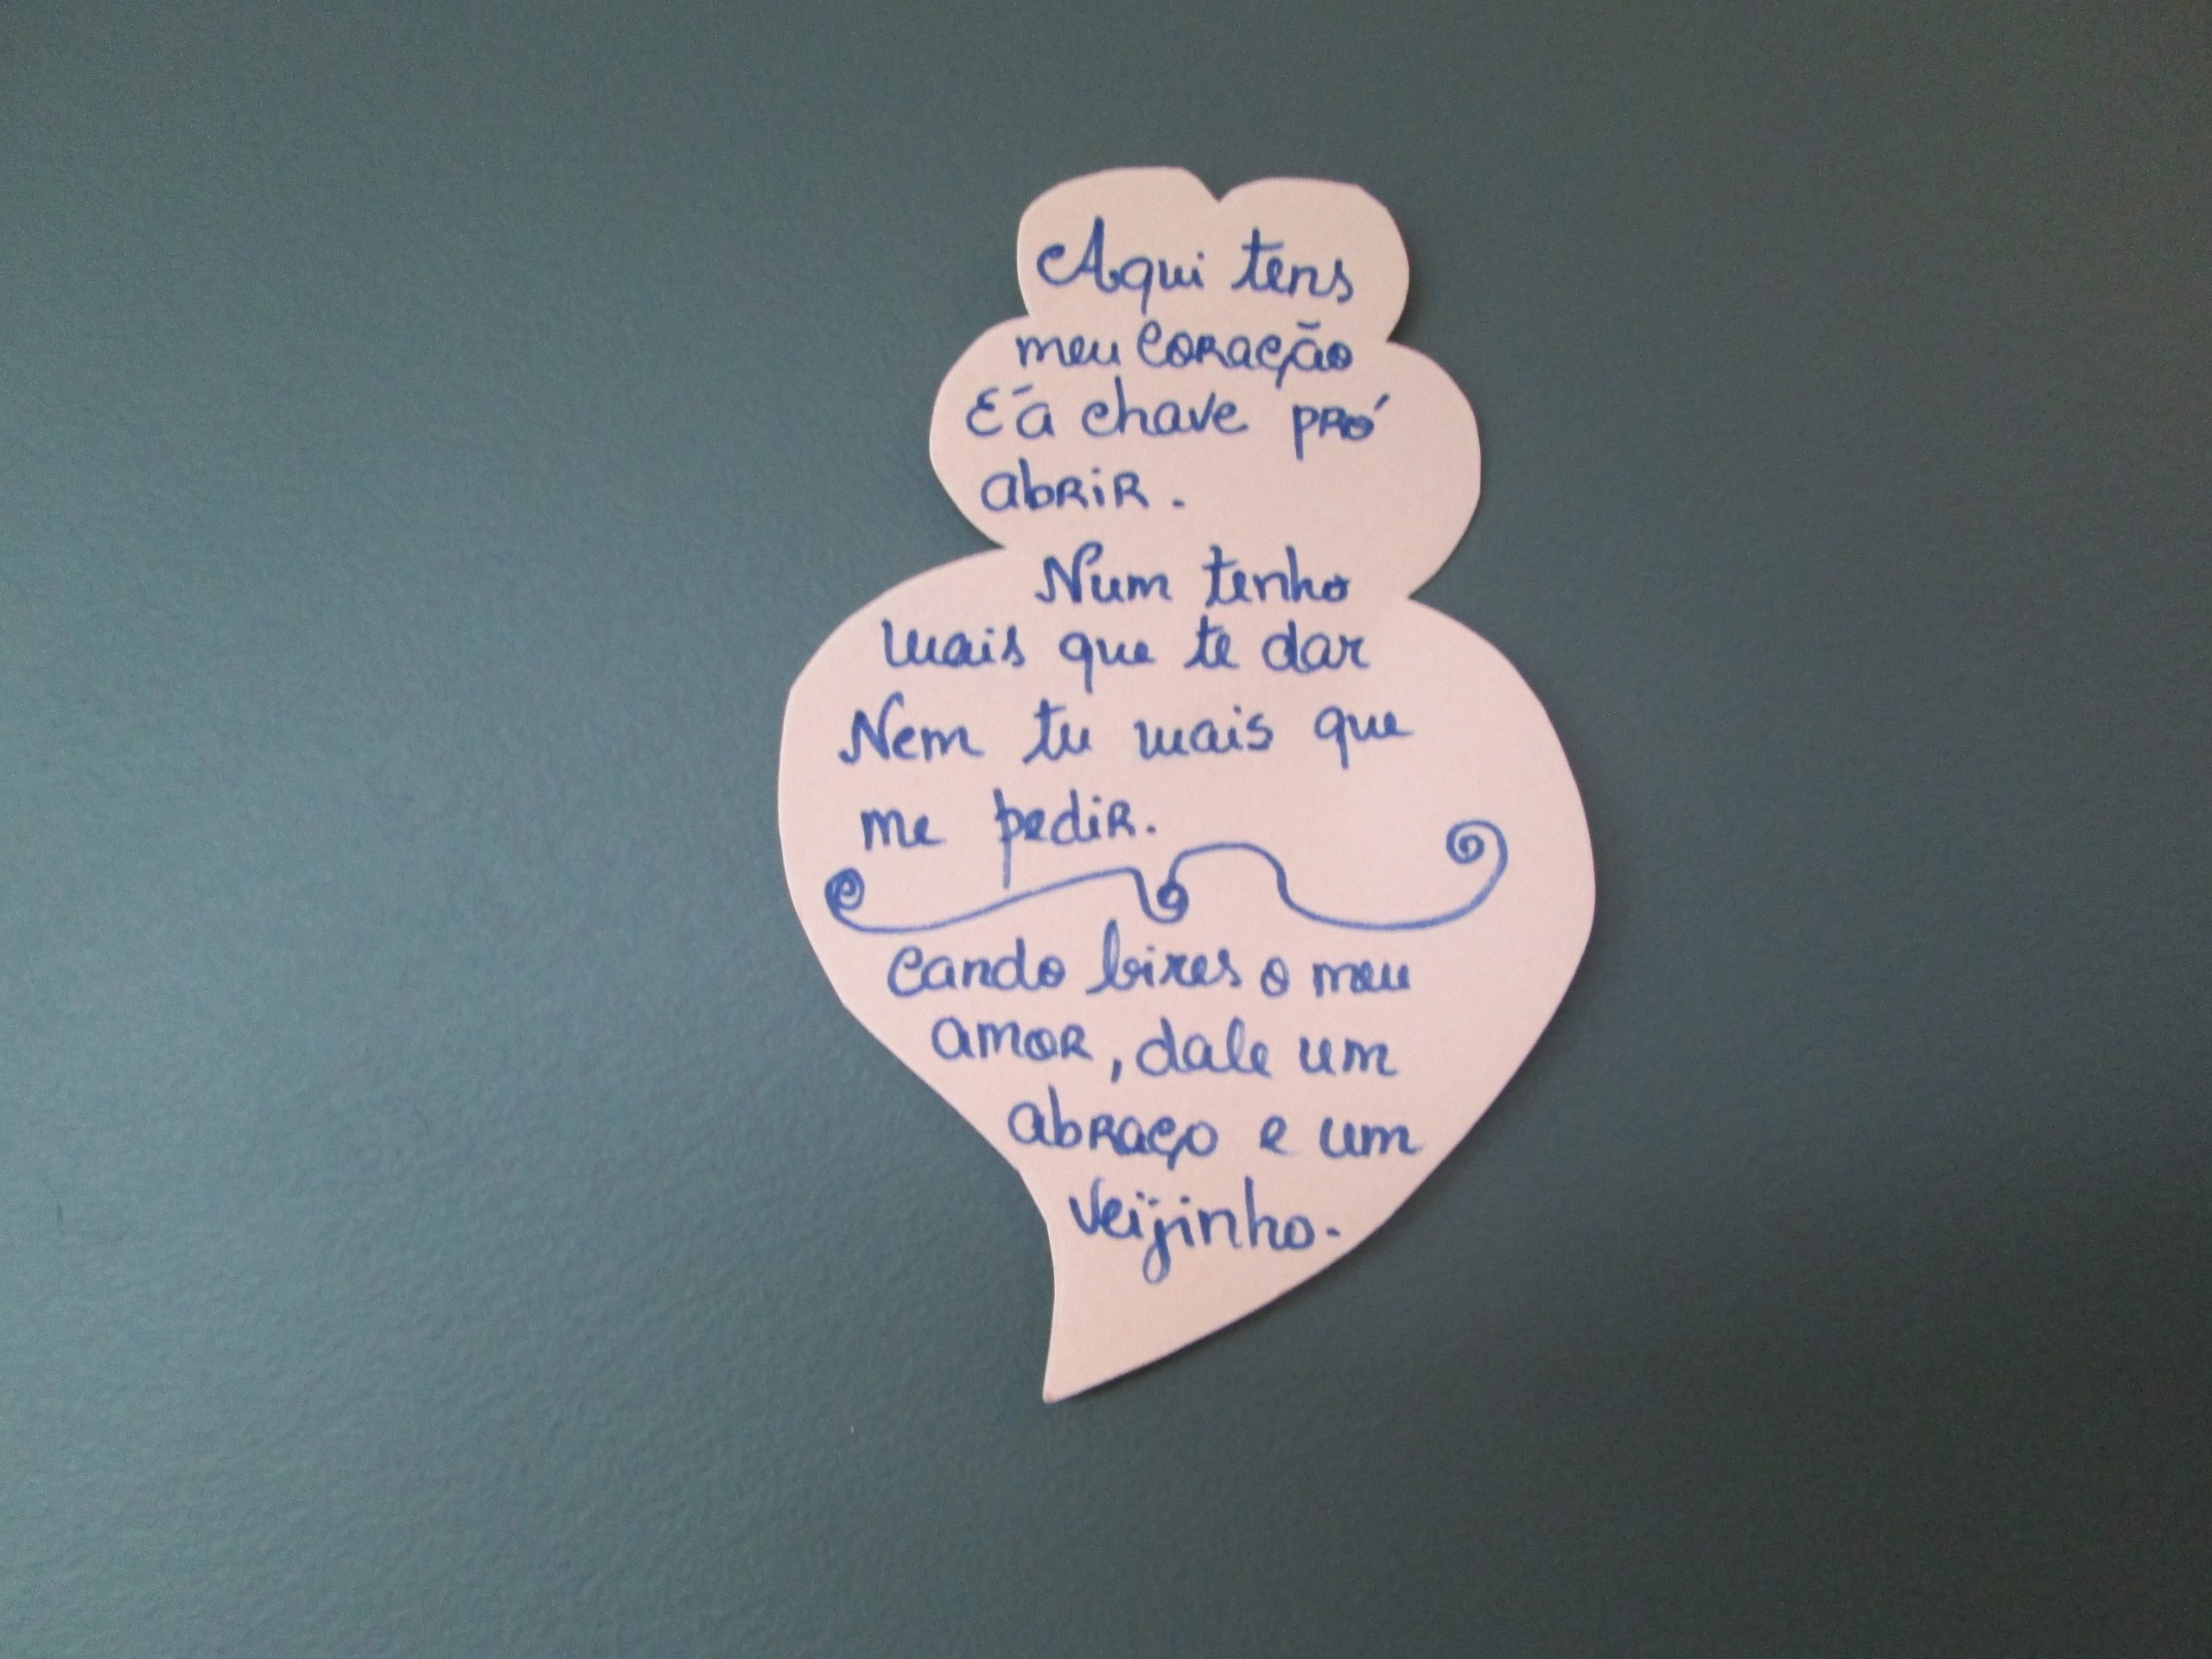 Aqui tens
meu coração
E á chave pró
abrir.
Num tenho
mais que te dar
Nem tu mais que
me pedir.
Cando bires o meu
amor, dale um
abraço e um
veijinho.